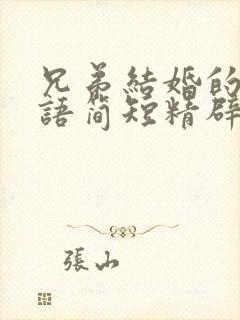 兄弟結婚的
語简短精辟
張山